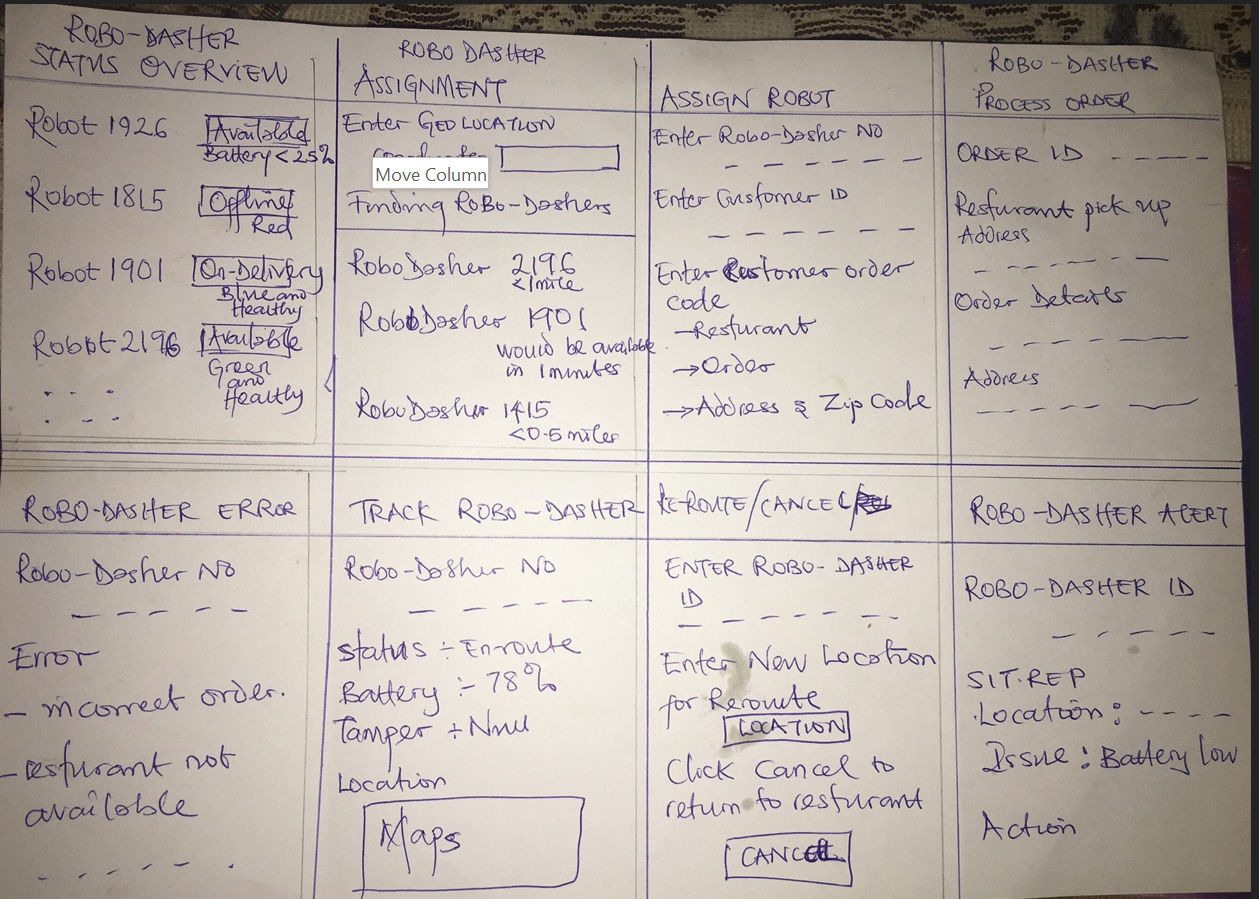 ROBO-DASHER
STATUS OVERVIEW
Robot 1926 Available
Battery < 25%
Robot 1815 Offline
Red
Robot 1901 On-Delivery
Blue and
Healthy
Robot 2196 Available
Green
and
Healthy
ROBO DASHER
ASSIGNMENT
Enter GEOLOCATION
Move Column
Finding ROBO-Dashers
RoboDasher 2196
<1mile
RoboDasher 1901
would be available
in 1 minutes
RoboDasher 1415
<0.5 miles
ASSIGN ROBOT
Enter Robo-Dasher NO
Enter Customer ID
Enter Customer order
code
→Resturant
→Order
→Address & Zip Code
ROBO-DASHER
PROCESS ORDER
ORDER ID
Resturant pick up
Address
Order Details
Address
ROBO-DASHER ERROR
Robo-Dasher NO
Error
- incorrect order.
- resturant not
available
TRACK ROBO-DASHER
Robo-Dasher NO
Status :- Enroute
Battery :- 78%
Tamper :-
Location
Maps
RE-ROUTE/CANCEL/
ENTER ROBO-DASHER
ID
Enter New Location
for Reroute
LOCATION
Click Cancel to
return to resturant
CANCEL
ROBO-DASHER ALERT
ROBO-DASHER ID
SIT.REP
Location:
Issue: Battery low
Action